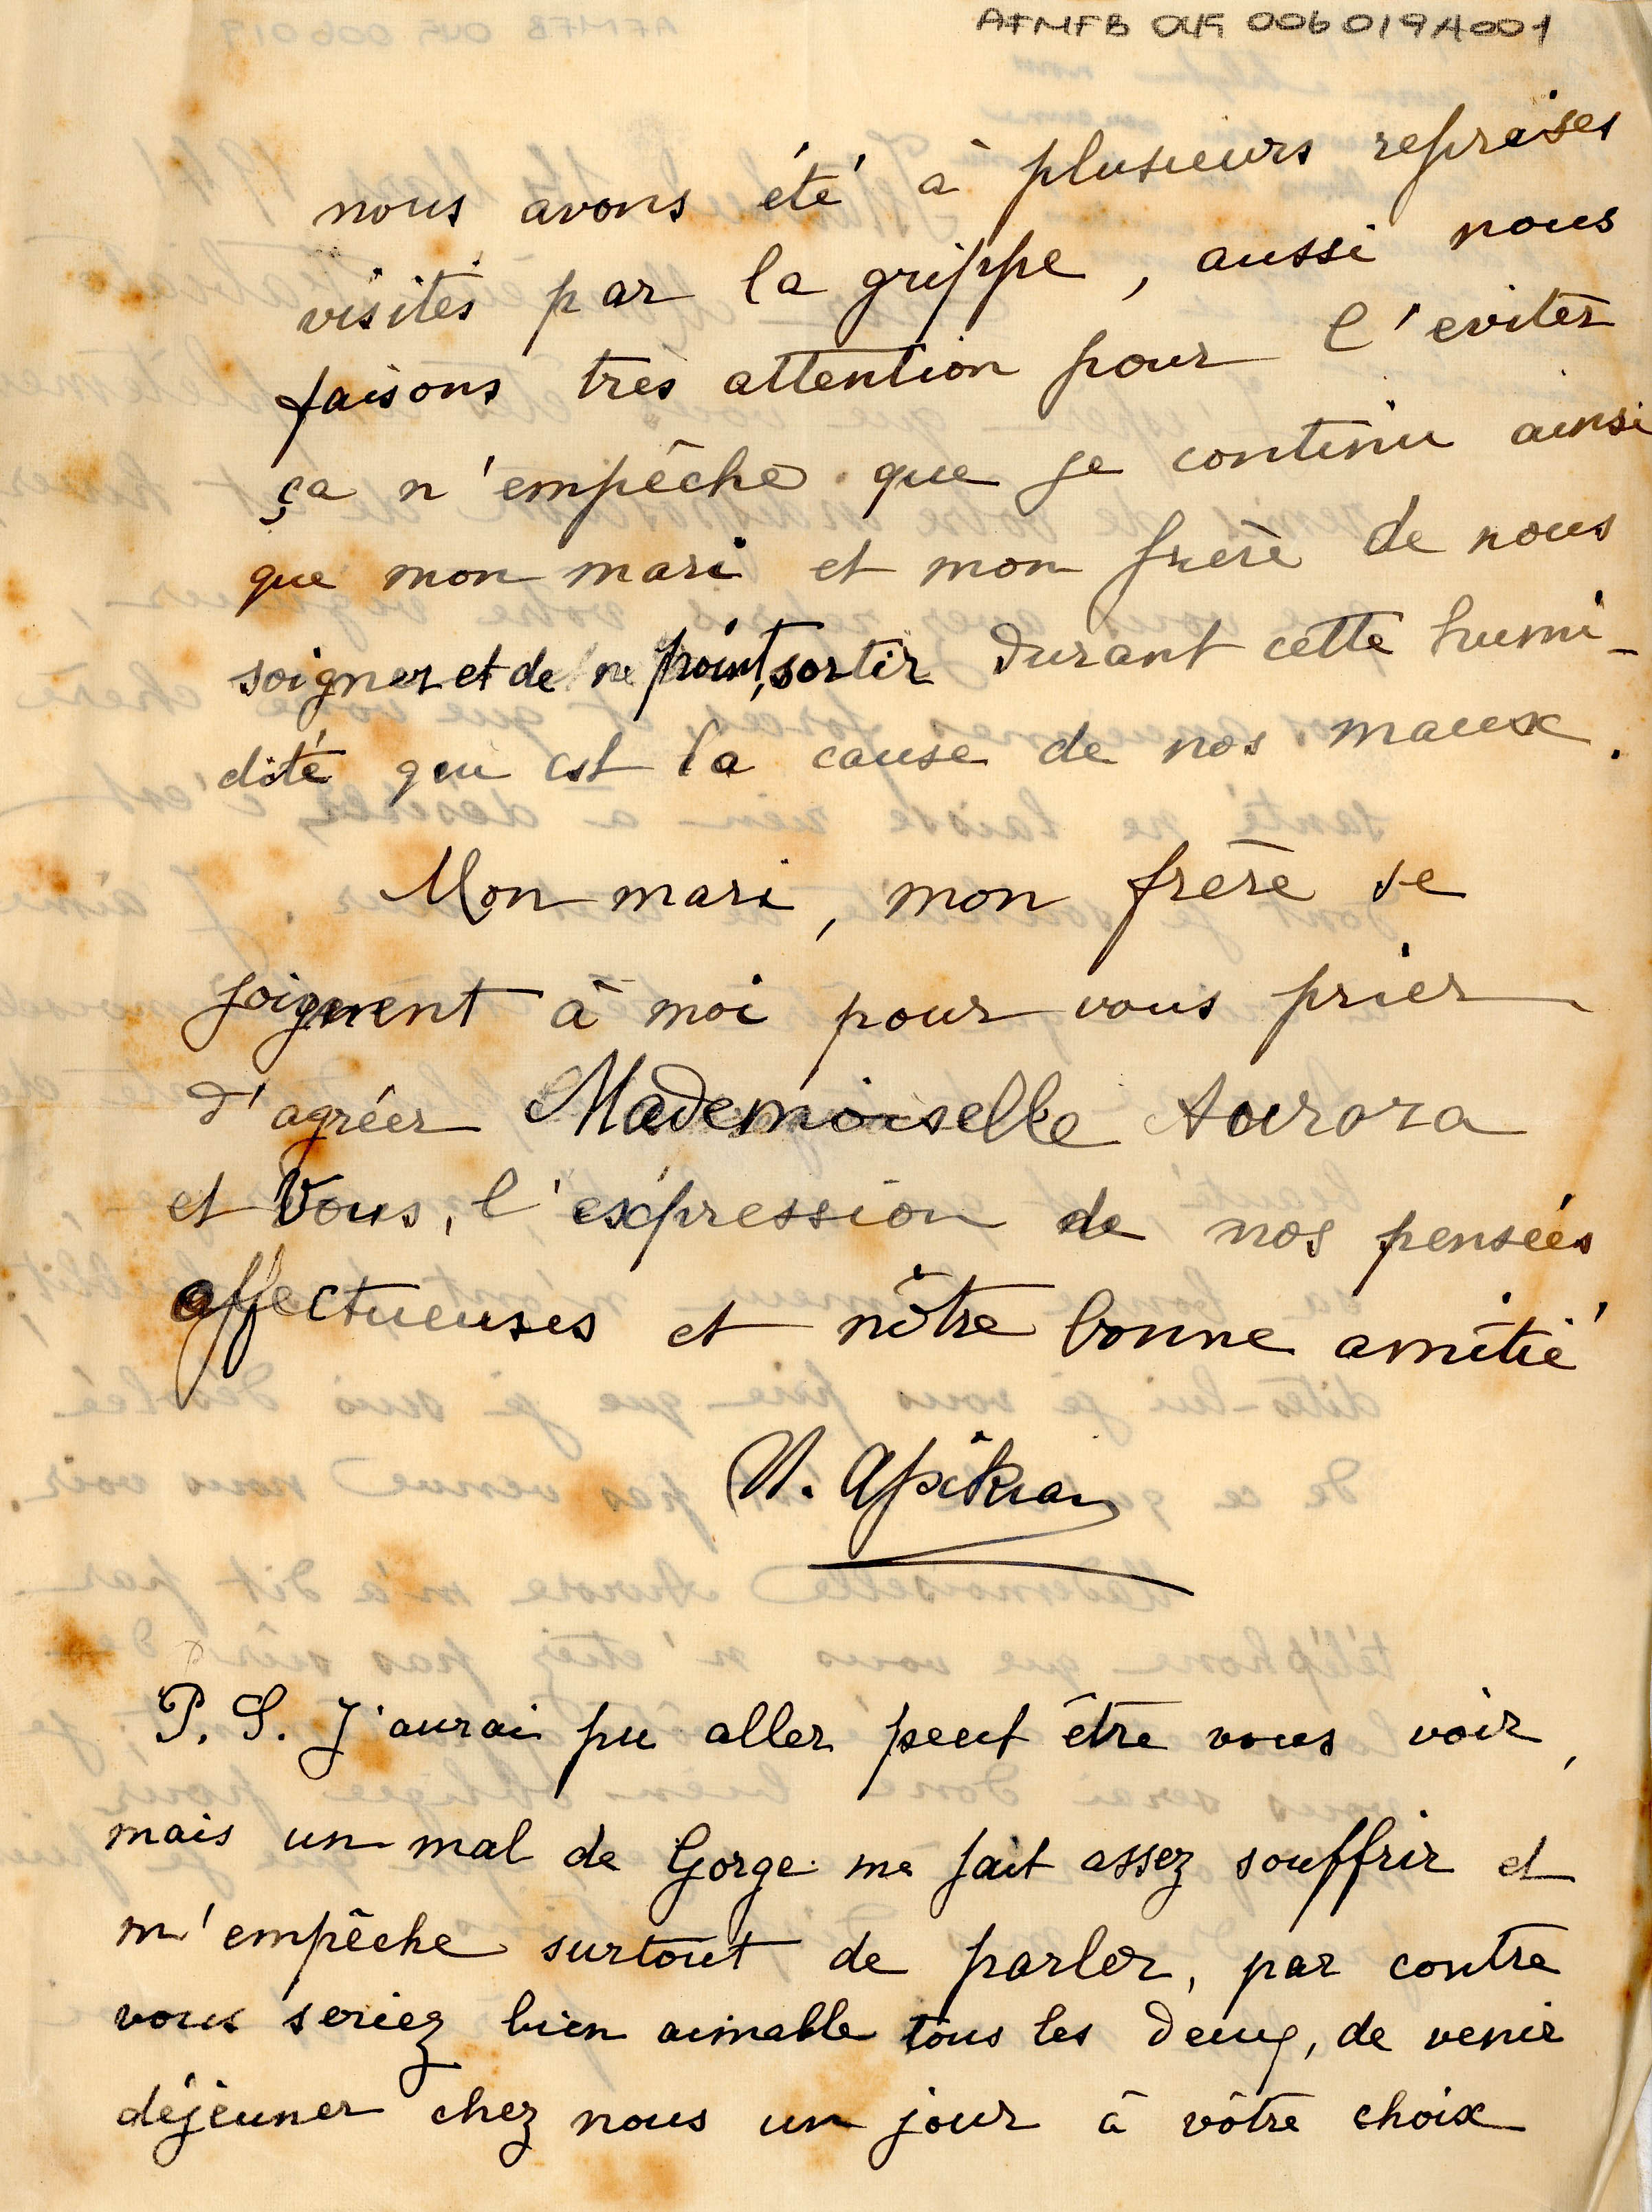 AFMFB OVR 006 019A001
nous avons été à plusieurs reprises
visités par la grippe, aussi nous
faisons très attention pour l'eviter
ça n'empêche que je continu ainsi
que mon mari et mon frère de nous
soigner et de ne point, sortir durant cette humi-
dité qui est la cause de nos maux.
Mon mari, mon frère se
joignent à moi pour vous prier
d'agréer Mademoiselle Aurora
et Vous, l'expression de nos pensées
affectueuses et nôtre bonne amitié
Apikian
P.S. J'aurai pu aller peut être vous voir,
mais un mal de Gorge me fait assez souffrir et
m'empêche surtout de parler, par contre
vous seriez bien aimable tous les deux, de venir
déjeuner chez nous un jour à vôtre choix